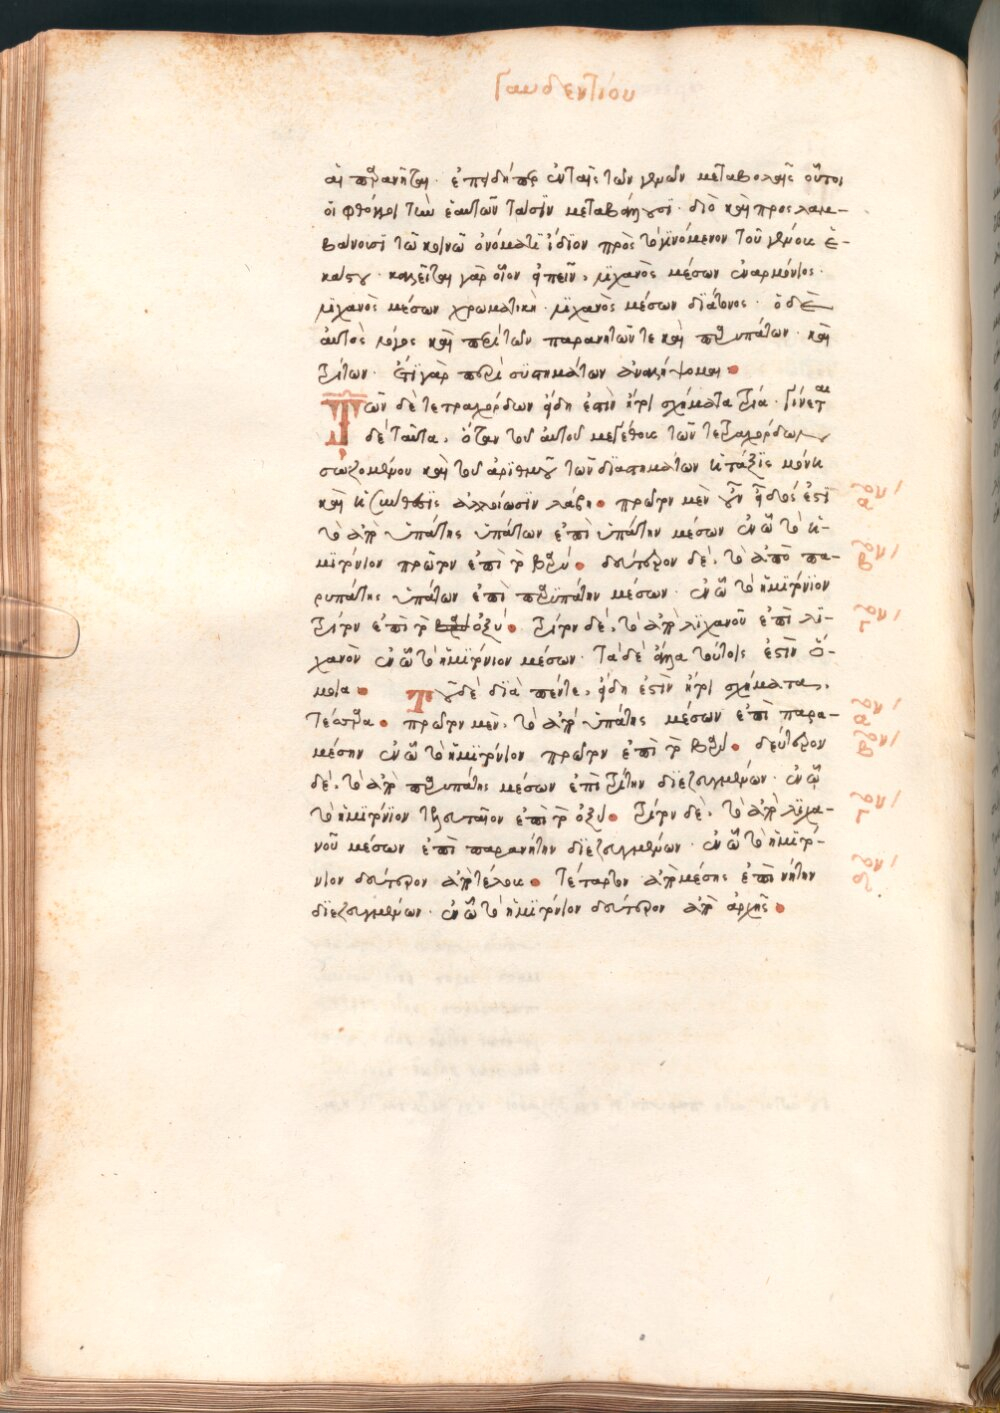 Γαυδεντίου
αἱ παρανῆται· ἐπειδήπερ ἐν ταῖς τῶν γενῶν μεταβολαῖς οὗτοι
οἱ φθόγγοι τὴν ἑαυτῶν τάσιν μεταβάλλουσι· διὸ καὶ προσλαμ-
βάνουσι τῷ κοινῷ ὀνόματι ἴδιον πρὸς τὸ γινόμενον τοῦ γένους ἑ-
κάστου· καλεῖται γὰρ οἷον εἰπεῖν, λιχανὸς μέσων ἐναρμόνιος·
λιχανὸς μέσων χρωματική· λιχανὸς μέσων διάτονος· ὁ δὲ
αὐτὸς λόγος καὶ περὶ τῶν παρανητῶν τε καὶ παρυπάτων· καὶ
τρίτων· ἔτι γὰρ περὶ συστημάτων ἀναλήψομαι
Τῶν δὲ τετραχόρδων εἴδη ἐστὶν ἤτοι σχήματα τρία· γίνεται
δὲ ταῦτα, ὅταν τοῦ αὐτοῦ μεγέθους τῶν τετραχόρδων
σωζομένου καὶ τοῦ ἀριθμοῦ τῶν διαστημάτων ἡ τάξις μόνη
καὶ ἡ σύνθεσις ἀλλοίωσιν λάβῃ πρῶτον μὲν οὖν εἶδός ἐστι
τὸ ἀπὸ ὑπάτης ὑπάτων ἐπὶ ὑπάτην μέσων ἐν ᾧ τὸ ἡ-
μιτόνιον πρῶτον ἐπὶ τὸ βαρύ δεύτερον δέ, τὸ ἀπὸ πα-
ρυπάτης ὑπάτων ἐπὶ παρυπάτην μέσων· ἐν ᾧ τὸ ἡμιτόνιον
τρίτον ἐπὶ τὸ βαρὺ ὀξύ τρίτον δέ, τὸ ἀπὸ λιχανοῦ ἐπὶ λι-
χανὸν ἐν ᾧ τὸ ἡμιτόνιον μέσων· τὰ δὲ ἄλλα τούτοις ἐστὶν ὅ-
μοια τοῦ δὲ διὰ πέντε, εἴδη ἐστὶν ἤτοι σχήματα,
τέσσαρα πρῶτον μὲν, τὸ ἀπὸ ὑπάτης μέσων ἐπὶ παρα-
μέσην ἐν ᾧ τὸ ἡμιτόνιον πρῶτον ἐπὶ τὸ βαρύ δεύτερον
δέ, τὸ ἀπὸ παρυπάτης μέσων ἐπὶ τρίτην διεζευγμένων· ἐν ᾧ
τὸ ἡμιτόνιον τελευταῖον ἐπὶ τὸ ὀξύ τρίτον δὲ, τὸ ἀπὸ λιχα-
νοῦ μέσων ἐπὶ παρανήτην διεζευγμένων· ἐν ᾧ τὸ ἡμιτό-
νιον δεύτερον ἀπὸ τέλους τέταρτον ἀπὸ μέσης ἐπὶ νήτην
διεζευγμένων· ἐν ᾧ τὸ ἡμιτόνιον δεύτερον ἀπὸ ἀρχῆς